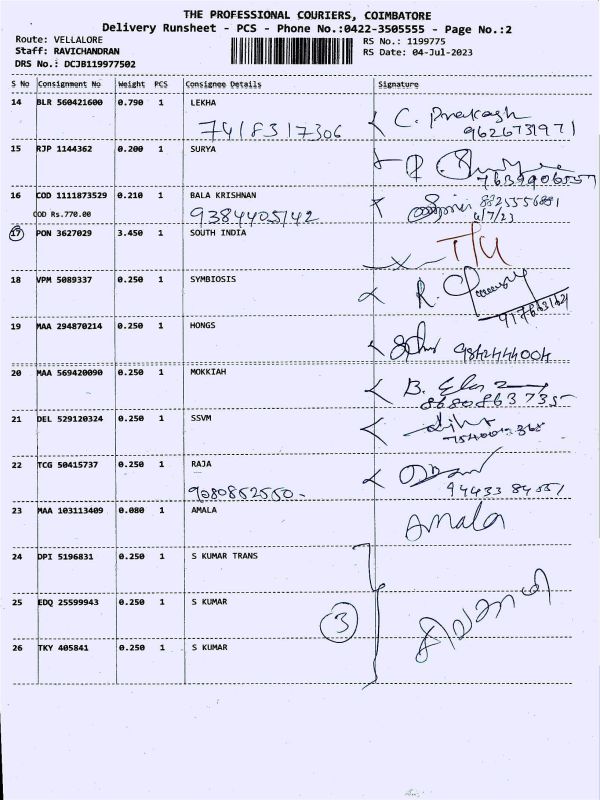 THE PROFESSIONAL COURIERS, COIMBATORE
Delivery Runsheet - PCS - Phone No.:0422-3505555 - Page No.:2
Route: VELLALORE
RS No.: 1199775
Staff: RAVICHANDRAN
RS Date: 04-Jul-2023
DRS No.: DCJB119977502
S No Consignment No Weight PCS Consignee Details Signature
14 BLR 560421600 0.790 1 LEKHA C. Prakash
7418317306 9626731971
15 RJP 1144362 0.200 1 SURYA
16 COD 1111873529 0.210 1 BALA KRISHNAN 8825556881
COD Rs.770.00 9384405142 4/7/23
17 PON 3627029 3.450 1 SOUTH INDIA
18 VPM 5089337 0.250 1 SYMBIOSIS R.
19 MAA 294870214 0.250 1 HONGS
9842444004
20 MAA 569420090 0.250 1 MOKKIAH B.
8680863735
21 DEL 529120324 0.250 1 SSVM
22 TCG 50415737 0.250 1 RAJA
9080852550-
23 MAA 103113409 0.080 1 AMALA Amala
24 DPI 5196831 0.250 1 S KUMAR TRANS
25 EDQ 25599943 0.250 1 S KUMAR
3
26 TKY 405841 0.250 1 S KUMAR